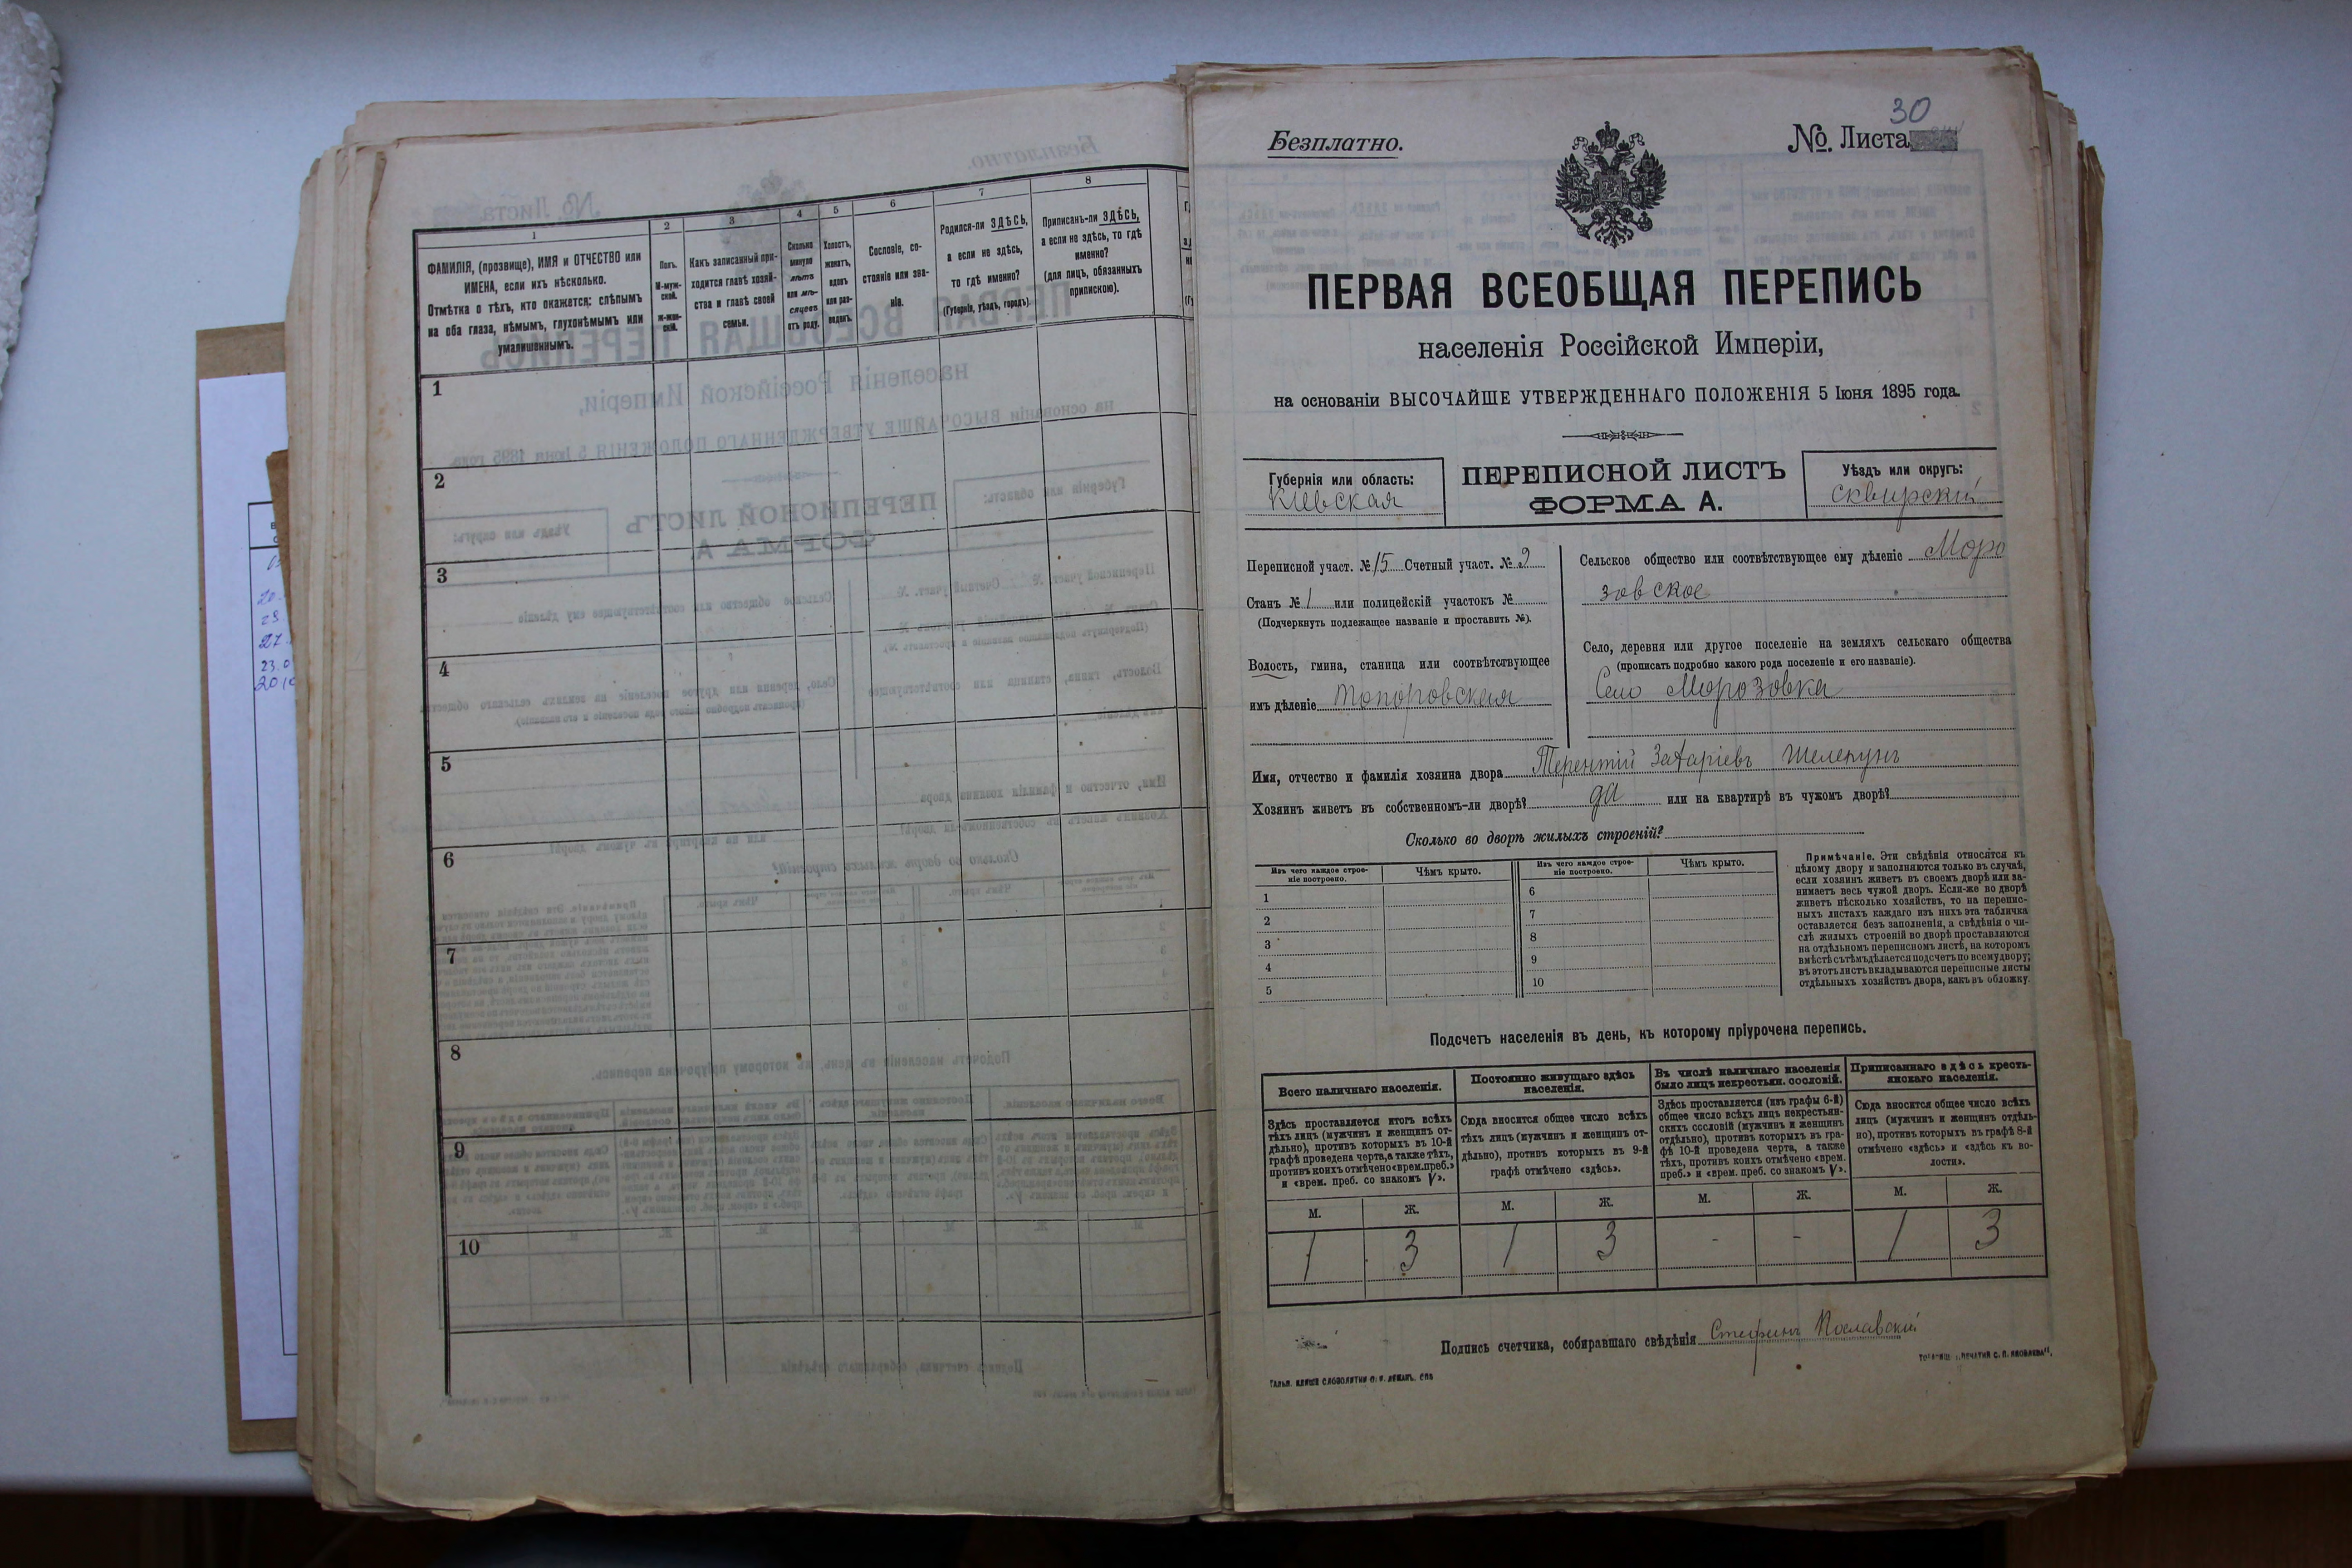 1
2
3
4
5
6
7
8
ФАМИЛІЯ, (прозвище), ИМЯ и ОТЧЕСТВО или
ИМЕНА, если ихъ нѣсколько.
Отмѣтка о тѣхъ, кто окажется: слѣпымъ
на оба глаза, нѣмымъ, глухонѣмымъ или
умалишеннымъ.
Полъ.
М-муж-
ской.
ж-жен-
скій.
Какъ записанный при-
ходится главѣ хозяй-
ства и главѣ своей
семьи.
Сколько
минуло
лѣтъ
или мѣ-
сяцевъ
отъ роду.
Холостъ,
женатъ,
вдовъ
или раз-
веденъ.
Сословіе, со-
стояніе или зва-
ніе.
Родился-ли ЗДѢСЬ,
а если не здѣсь,
то гдѣ именно?
(Губернія, уѣздъ, городъ)
Приписанъ-ли ЗДѢСЬ,
а если не здѣсь, то гдѣ
именно?
(для лицъ, обязанныхъ
припискою).
1
2
3
4
5
6
7
8
9
10
30
Безплатно.
№ Листа
ПЕРВАЯ ВСЕОБЩАЯ ПЕРЕПИСЬ
населенія Россійской Имперіи,
на основаніи ВЫСОЧАЙШЕ УТВЕРЖДЕННАГО ПОЛОЖЕНІЯ 5 Іюня 1895 года.
Губернія или область:
Кіевская
ПЕРЕПИСНОЙ ЛИСТЪ
ФОРМА А.
Уѣздъ или округъ:
Сквирскій
Переписной участ. № 15 Счетный участ. № 2
Станъ № 1 или полицейскій участокъ №
(Подчеркнуть подлежащее названіе и проставить №).
Волость, гмина, станица или соотвѣтствующее
имъ дѣленіе Топоровская
Сельское общество или соотвѣтствующее ему дѣленіе Моро
зовское
Село, деревня или другое поселеніе на земляхъ сельскаго общества
(прописать подробно какого рода поселеніе и его названіе).
Село Морозовка
Имя, отчество и фамилія хозяина двора Терентій Захаріевъ Шелепунъ
Хозяинъ живетъ въ собственномъ-ли дворѣ? да или на квартирѣ въ чужомъ дворѣ?
Сколько во дворѣ жилыхъ строеній?
Изъ чего каждое строе-
ніе построено.
Чѣмъ крыто.
Изъ чего каждое строе-
ніе построено.
Чѣмъ крыто.
1
2
3
4
5
6
7
8
9
10
Примѣчаніе. Эти свѣдѣнія относятся къ
цѣлому двору и заполняются только въ случаѣ,
если хозяинъ живетъ въ своемъ дворѣ или за-
нимаетъ весь чужой дворъ. Если-же во дворѣ
живетъ нѣсколько хозяйствъ, то на перепис-
ныхъ листахъ каждаго изъ нихъ эта табличка
оставляется безъ заполненія, а свѣдѣнія о чи-
слѣ жилыхъ строеній во дворѣ проставляются
на отдѣльномъ переписномъ листѣ, на которомъ
вмѣстѣ съ тѣмъ дѣлается подсчетъ по всему двору;
въ этотъ листъ вкладываются переписные листы
отдѣльныхъ хозяйствъ двора, какъ въ обложку.
Подсчетъ населенія въ день, къ которому пріурочена перепись.
Всего наличнаго населенія.
Здѣсь проставляется итогъ всѣхъ
тѣхъ лицъ (мужчинъ и женщинъ от-
дѣльно), противъ которыхъ въ 10-й
графѣ проведена черта, а также тѣхъ,
противъ коихъ отмѣчено «врем. преб.»
и «врем. преб. со знакомъ V».
Постоянно живущаго здѣсь
населенія.
Сюда вносится общее число всѣхъ
тѣхъ лицъ (мужчинъ и женщинъ от-
дѣльно), противъ которыхъ въ 9-й
графѣ отмѣчено «здѣсь».
Въ числѣ наличнаго населенія
было лицъ некрестьян. сословій.
Здѣсь проставляется (изъ графы 6-й)
общее число всѣхъ лицъ некрестьян-
скихъ сословій (мужчинъ и женщинъ
отдѣльно), противъ которыхъ въ гра-
фѣ 10-й проведена черта, а также
тѣхъ, противъ коихъ отмѣчено «врем.
преб.» и «врем. преб. со знакомъ V».
Приписаннаго здѣсь кресть-
янскаго населенія.
Сюда вносится общее число всѣхъ
лицъ (мужчинъ и женщинъ отдѣль-
но), противъ которыхъ въ графѣ 8-й
отмѣчено «здѣсь» и «здѣсь къ во-
лости».
М. Ж. М. Ж. М. Ж. М. Ж.
1 3 1 3 - - 1 3
Подпись счетчика, собиравшаго свѣдѣнія Стефанъ